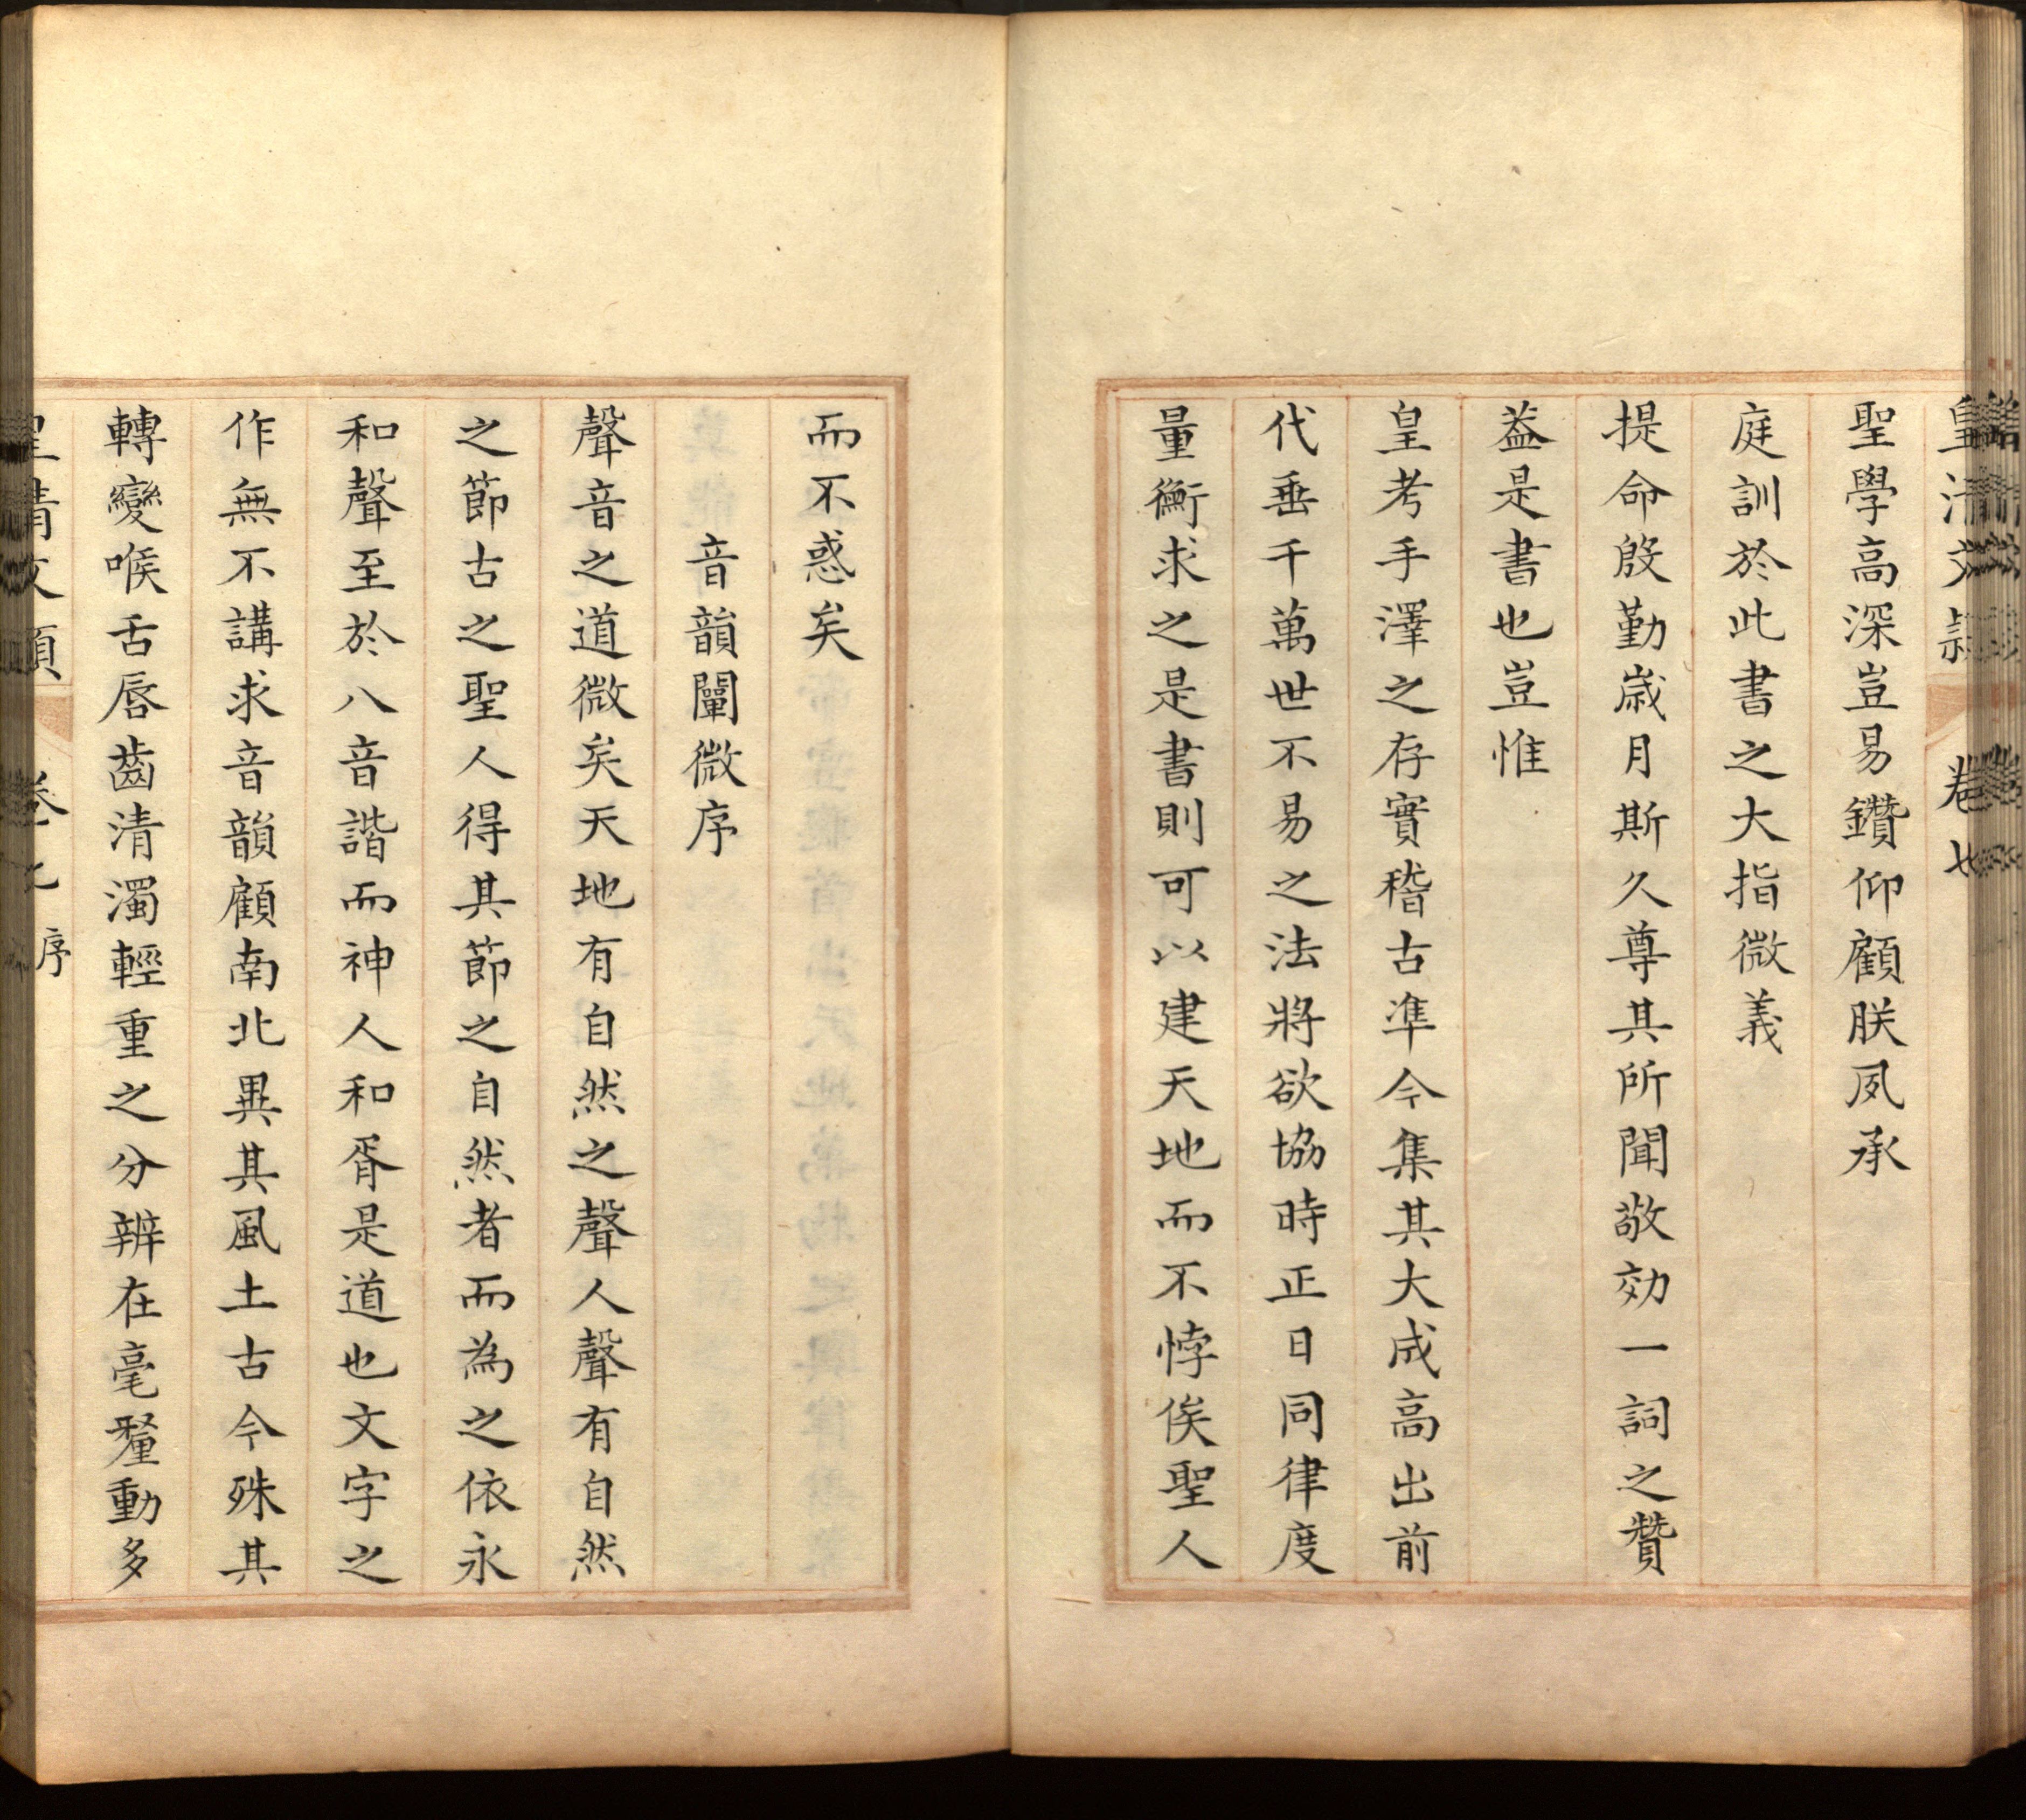 皇清文穎 卷七
聖學高深豈易鑽仰顧朕夙承
庭訓於此書之大指微義
提命殷勤歲月斯久尊其所聞敬效一詞之贊
葢是書也豈惟
皇考手澤之存實稽古準今集其大成高出前
代垂千萬世不易之法將欲協時正日同律度
量衡求之是書則可以建天地而不悖俟聖人
而不惑矣
音韻闡微序
聲音之道微矣天地有自然之聲人聲有自然
之節古之聖人得其節之自然者而為之依永
和聲至於八音諧而神人和胥是道也文字之
作無不講求音韻顧南北異其風土古今殊其
轉變喉舌唇齒清濁輕重之分辨在毫釐動多
皇清文穎 卷七 序